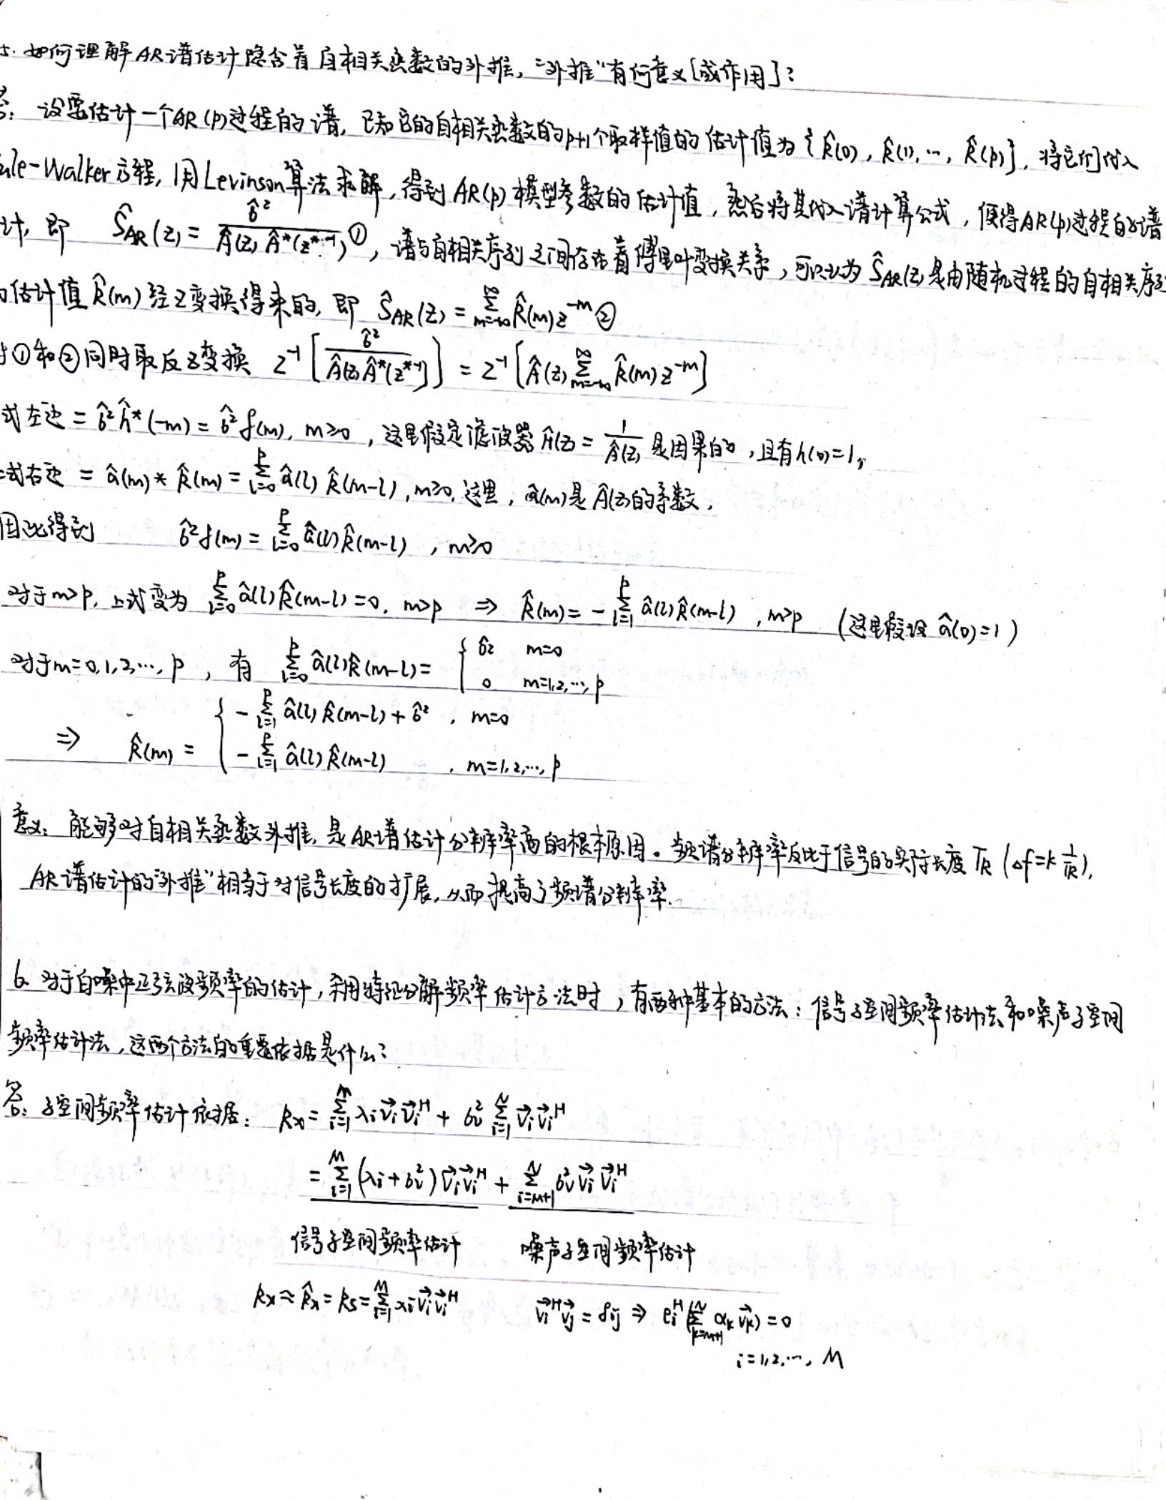 5. 如何理解AR谱估计隐含着自相关函数的外推，"外推"有何意义[或作用]?
答: 设要估计一个AR(p)过程的谱, 已知它的自相关函数的p+1个取样值的估计值为{R̂(0), R̂(1), …, R̂(p)}, 将它们代入
ule-Walker方程, 用Levinson算法求解, 得到AR(p)模型参数的估计值, 然后将其代入谱计算公式, 便得AR(p)过程的谱
计, 即 Ŝ_AR(z) = σ̂²/(Â(z)Â*(z*⁻¹)) ①, 谱与自相关序列之间存在着傅里叶变换关系, 可以认为Ŝ_AR(z)是由随机过程的自相关序
的估计值R̂(m)经Z变换得来的, 即 Ŝ_AR(z) = Σ_{m=-∞}^{∞} R̂(m)z^{-m} ②
对①和②同时取反Z变换 Z⁻¹[σ̂²/(Â(z)Â*(z*⁻¹))] = Z⁻¹[Â(z)Σ_{m=-∞}^{∞} R̂(m)z^{-m}]
式左边 = σ̂²ĥ*(-m) = σ̂²δ(m), m≥0, 这里假定滤波器Ĥ(z) = 1/Â(z) 是因果的, 且有h(0)=1,
式右边 = â(m)*R̂(m) = Σ_{l=0}^{p} â(l)R̂(m-l), m≥0, 这里, â(m)是Â(z)的系数,
因此得到 σ̂²δ(m) = Σ_{l=0}^{p} â(l)R̂(m-l), m≥0
对于m>p, 上式变为 Σ_{l=0}^{p} â(l)R̂(m-l)=0, m>p ⇒ R̂(m) = -Σ_{l=1}^{p} â(l)R̂(m-l), m>p (这里假设 â(0)=1)
对于m=0,1,2,…,p, 有 Σ_{l=0}^{p} â(l)R̂(m-l) = { σ̂² m=0
0 m=1,2,…,p
⇒ R̂(m) = { -Σ_{l=1}^{p} â(l)R̂(m-l)+σ̂², m=0
-Σ_{l=1}^{p} â(l)R̂(m-l), m=1,2,…,p
意义: 能够对自相关函数外推, 是AR谱估计分辨率高的根本原因。频谱分辨率反比于信号的实际长度T_R (Δf=k 1/T_R),
AR谱估计的"外推"相当于对信号长度的扩展, 从而提高了频谱分辨率.
6. 对于白噪中正弦波频率的估计, 采用特征分解频率估计方法时, 有两种基本的方法: 信号子空间频率估计法和噪声子空间
频率估计法, 这两个方法的重要依据是什么?
答: 子空间频率估计依据: Rx = Σ_{i=1}^{M} λi v⃗i v⃗i^H + σv² Σ_{i=1}^{N} v⃗i v⃗i^H
= Σ_{i=1}^{M} (λi+σv²) v⃗i v⃗i^H + Σ_{i=M+1}^{N} σv² v⃗i v⃗i^H
信号子空间频率估计 噪声子空间频率估计
Rx ≈ R̂x = Rs = Σ_{i=1}^{M} λi v⃗i v⃗i^H v⃗i^H v⃗j = δij ⇒ ei^H (Σ_{k=M+1}^{N} αk v⃗k) = 0
i=1,2,…, M